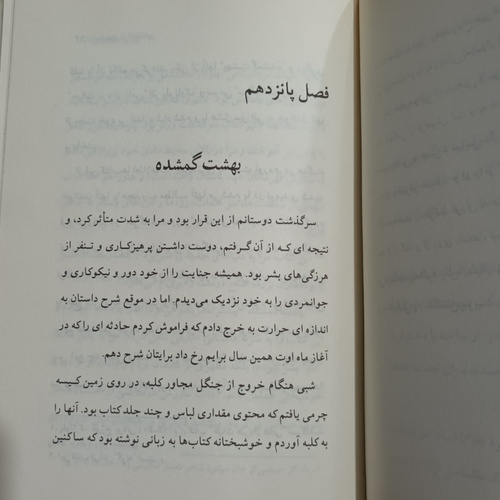 فصل پانزدهم
بهشت گمشده
سرگذشت دوستانم از این قرار بود و مرا به شدت متأثر کرد، و
نتیجه ای که از آن گرفتم، دوست داشتن پرهیزکاری و تنفر از
هرزگی‌های بشر بود. همیشه جنایت را از خود دور و نیکوکاری و
جوانمردی را به خود نزدیک می‌دیدم. اما در موقع شرح داستان به
اندازه ای حرارت به خرج دادم که فراموش کردم حادثه ای را که در
آغاز ماه اوت همین سال برایم رخ داد برایتان شرح دهم.
شبی هنگام خروج از جنگل مجاور کلبه، در روی زمین کیسه
چرمی یافتم که محتوی مقداری لباس و چند جلد کتاب بود. آنها را
به کلبه آوردم و خوشبختانه کتاب‌ها به زبانی نوشته بود که ساکنین